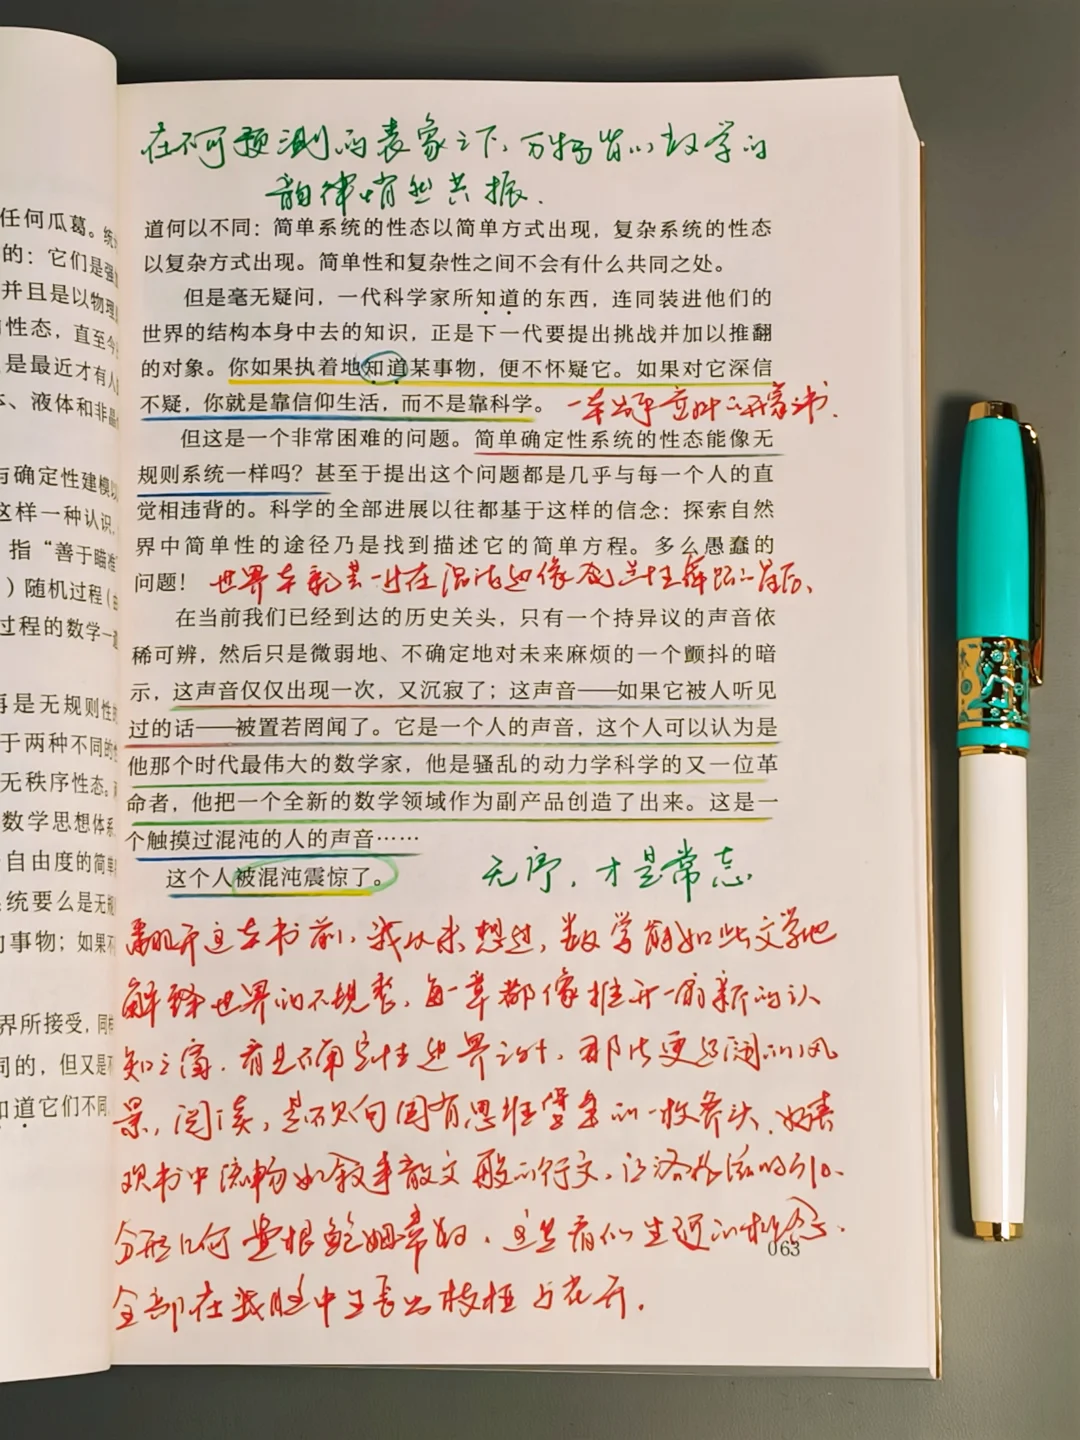 任何瓜葛。统
的：它们是强
并且是以物理
性态，直至今
是最近才有人
、液体和非晶
与确定性建模
这样一种认识，
指“善于瞄准
）随机过程（
过程的数学一
再是无规则性
于两种不同的
无秩序性态。
数学思想体系
自由度的简单
统要么是无规
事物；如果不
界所接受，同
同的，但又是不
知道它们不同。
在不可预测的表象之下，万物皆以数学的
韵律悄然共振．
道何以不同：简单系统的性态以简单方式出现，复杂系统的性态
以复杂方式出现。简单性和复杂性之间不会有什么共同之处。
但是毫无疑问，一代科学家所知道的东西，连同装进他们的
世界的结构本身中去的知识，正是下一代要提出挑战并加以推翻
的对象。你如果执着地知道某事物，便不怀疑它。如果对它深信
不疑，你就是靠信仰生活，而不是靠科学。
一本
但这是一个非常困难的问题。简单确定性系统的性态能像无
规则系统一样吗？甚至于提出这个问题都是几乎与每一个人的直
觉相违背的。科学的全部进展以往都基于这样的信念：探索自然
界中简单性的途径乃是找到描述它的简单方程。多么愚蠢的
问题！
世界本就是一片在混沌边缘
在当前我们已经到达的历史关头，只有一个持异议的声音依
稀可辨，然后只是微弱地、不确定地对未来麻烦的一个颤抖的暗
示，这声音仅仅出现一次，又沉寂了；这声音——如果它被人听见
过的话——被置若罔闻了。它是一个人的声音，这个人可以认为是
他那个时代最伟大的数学家，他是骚乱的动力学科学的又一位革
命者，他把一个全新的数学领域作为副产品创造了出来。这是一
个触摸过混沌的人的声音……
这个人被混沌震惊了。
无序，才是常态
翻开这本书前，我从未想过，数学能如此文学地
解释世界的不规整，每一章都像推开一扇新的认
知之窗．看见不确定性边界之外，那片更辽阔的风
景，阅读，是不败向固有思维堡垒的一枚斧头．
欢书中流畅如叙事散文般的行文，让洛伦兹吸引子、
分形几何、费根鲍姆常数，这些看似生硬的概念．
全部在我脑中生长出枝桠与花开．
063